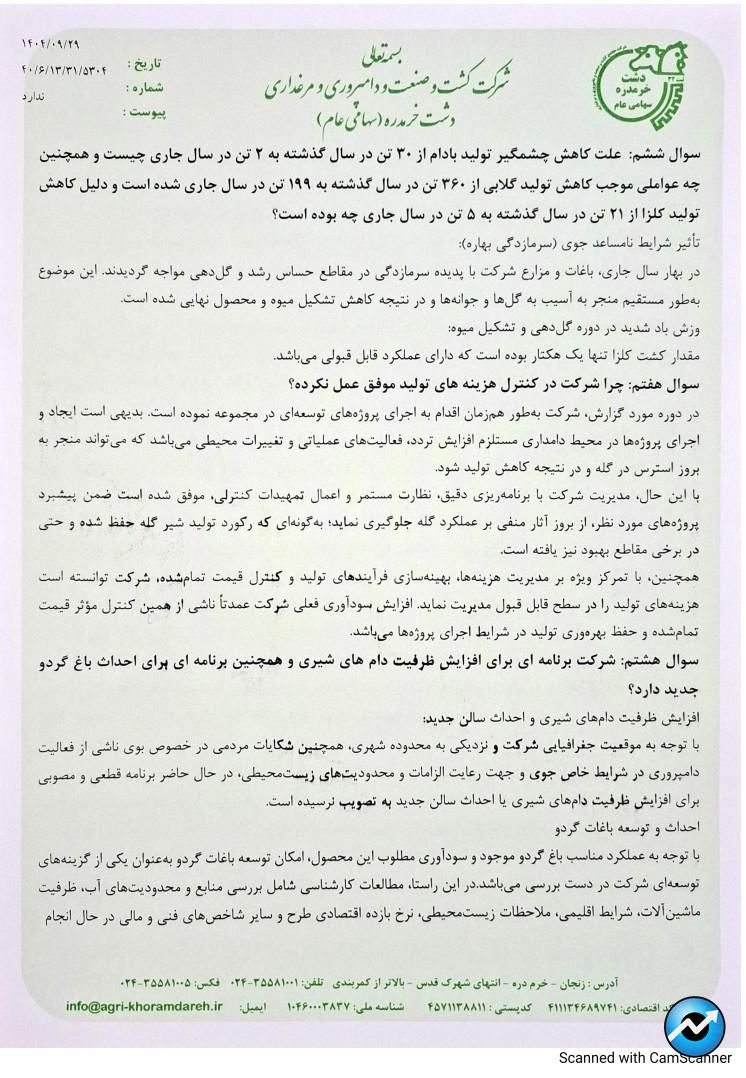 بسمه‌تعالی
شرکت کشت و صنعت و دامپروری و مرغداری
دشت خرمدره (سهامی عام)
دشت
خرمدره
سهامی عام
تاریخ : ۱۴۰۴/۰۹/۲۹
شماره : ۴۰/۶/۱۳/۳۱/۵۳۰۴
پیوست : ندارد
سوال ششم: علت کاهش چشمگیر تولید بادام از ۳۰ تن در سال گذشته به ۲ تن در سال جاری چیست و همچنین
چه عواملی موجب کاهش تولید گلابی از ۳۶۰ تن در سال گذشته به ۱۹۹ تن در سال جاری شده است و دلیل کاهش
تولید کلزا از ۲۱ تن در سال گذشته به ۵ تن در سال جاری چه بوده است؟
تأثیر شرایط نامساعد جوی (سرمازدگی بهاره):
در بهار سال جاری، باغات و مزارع شرکت با پدیده سرمازدگی در مقاطع حساس رشد و گل‌دهی مواجه گردیدند. این موضوع
به‌طور مستقیم منجر به آسیب به گل‌ها و جوانه‌ها و در نتیجه کاهش تشکیل میوه و محصول نهایی شده است.
وزش باد شدید در دوره گل‌دهی و تشکیل میوه:
مقدار کشت کلزا تنها یک هکتار بوده است که دارای عملکرد قابل قبولی می‌باشد.
سوال هفتم: چرا شرکت در کنترل هزینه های تولید موفق عمل نکرده؟
در دوره مورد گزارش، شرکت به‌طور هم‌زمان اقدام به اجرای پروژه‌های توسعه‌ای در مجموعه نموده است. بدیهی است ایجاد و
اجرای پروژه‌ها در محیط دامداری مستلزم افزایش تردد، فعالیت‌های عملیاتی و تغییرات محیطی می‌باشد که می‌تواند منجر به
بروز استرس در گله و در نتیجه کاهش تولید شود.
با این حال، مدیریت شرکت با برنامه‌ریزی دقیق، نظارت مستمر و اعمال تمهیدات کنترلی، موفق شده است ضمن پیشبرد
پروژه‌های مورد نظر، از بروز آثار منفی بر عملکرد گله جلوگیری نماید؛ به‌گونه‌ای که رکورد تولید شیر گله حفظ شده و حتی
در برخی مقاطع بهبود نیز یافته است.
همچنین، با تمرکز ویژه بر مدیریت هزینه‌ها، بهینه‌سازی فرآیندهای تولید و کنترل قیمت تمام‌شده، شرکت توانسته است
هزینه‌های تولید را در سطح قابل قبول مدیریت نماید. افزایش سودآوری فعلی شرکت عمدتاً ناشی از همین کنترل مؤثر قیمت
تمام‌شده و حفظ بهره‌وری تولید در شرایط اجرای پروژه‌ها می‌باشد.
سوال هشتم: شرکت برنامه ای برای افزایش ظرفیت دام های شیری و همچنین برنامه ای برای احداث باغ گردو
جدید دارد؟
افزایش ظرفیت دام‌های شیری و احداث سالن جدید:
با توجه به موقعیت جغرافیایی شرکت و نزدیکی به محدوده شهری، همچنین شکایات مردمی در خصوص بوی ناشی از فعالیت
دامپروری در شرایط خاص جوی و جهت رعایت الزامات و محدودیت‌های زیست‌محیطی، در حال حاضر برنامه قطعی و مصوبی
برای افزایش ظرفیت دام‌های شیری یا احداث سالن جدید به تصویب نرسیده است.
احداث و توسعه باغات گردو
با توجه به عملکرد مناسب باغ گردو موجود و سودآوری مطلوب این محصول، امکان توسعه باغات گردو به‌عنوان یکی از گزینه‌های
توسعه‌ای شرکت در دست بررسی می‌باشد.در این راستا، مطالعات کارشناسی شامل بررسی منابع و محدودیت‌های آب، ظرفیت
ماشین‌آلات، شرایط اقلیمی، ملاحظات زیست‌محیطی، نرخ بازده اقتصادی طرح و سایر شاخص‌های فنی و مالی در حال انجام
آدرس : زنجان - خرم دره - انتهای شهرک قدس - بالاتر از کمربندی تلفن: ۳۵۵۸۱۰۰۱-۰۲۴ فکس: ۳۵۵۸۱۰۰۵-۰۲۴
کد اقتصادی: ۴۱۱۱۳۴۶۸۹۷۴۱ کدپستی : ۴۵۷۱۱۳۸۸۱۱ شناسه ملی: ۱۰۴۶۰۰۰۳۸۳۷ ایمیل: info@agri-khoramdareh.ir
Scanned with CamScanner